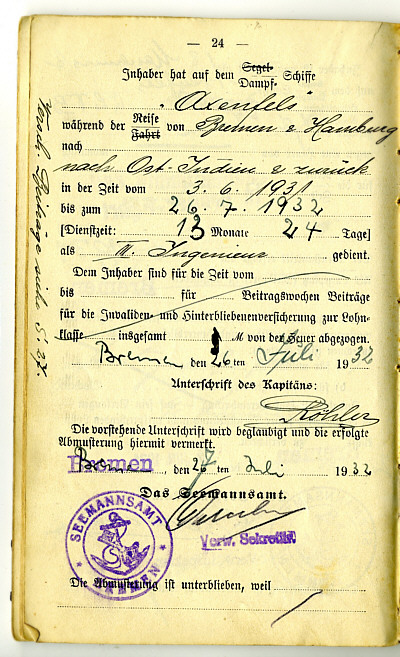 — 24 —
Inhaber hat auf dem Segel- Dampf- Schiffe
"Axenfels"
während der Reise Fahrt von Bremen & Hamburg
nach
nach Ost Indien & zurück
in der Zeit vom 3. 6. 1931
bis zum 26. 7. 1932
[Dienstzeit: 13 Monate 24 Tage]
als III. Ingenieur gedient.
Dem Inhaber sind für die Zeit vom
bis für Beitragswochen Beiträge
für die Invaliden- und Hinterbliebenenversicherung zur Lohn-
klasse insgesamt M von der Heuer abgezogen.
Bremen den 26 ten Juli 1932
Unterschrift des Kapitäns:
Köhler
Die vorstehende Unterschrift wird beglaubigt und die erfolgte
Abmusterung hiermit vermerkt.
Bremen, den 27 ten Juli 1932
Das Seemannsamt.
Verw. Sekretär
SEEMANNSAMT
BREMEN
Die Abmusterung ist unterblieben, weil
Versich. Beiträge siehe S. 27.